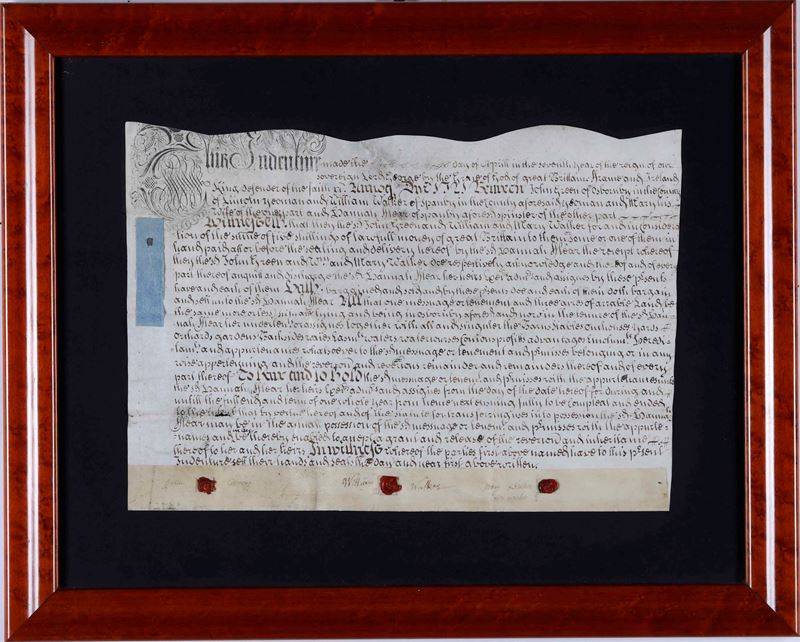 This Indenture made the day of Aprill in the seventh year of the reign of our
sovereign Lord George by the Grace of God of great Brittain France and Ireland
King defender of the faith &c Annoq Dni 1721 Between John Green of Osbornby in the County
of Lincoln yeoman and William Walker of Spanby in the County aforesaid yeoman and Mary his
Wife of the one part and Hannah Mear of Spanby aforesd spinster of the other part
Witnesseth that they the sd John Green and William and Mary Walker for and in considera
tion of the summe of five shillings of lawfull money of great Brittain to them some or one of them in
hand paid att or before the sealing and delivery hereof by the sd Hannah Mear the receipt whereof
they the sd John Green and Wm and Mary Walker doe respectively acknowledge and thereof and of every
part thereof acquitt and discharge the sd Hannah Mear her heirs Exers Admrs and assigns by these prsents
have and each of them Hath bargained and sold and by these prsents doe and each of them doth bargain
and sell unto the sd Hannah Mear All that one messuage or tenement and three acres of arable Land be
the same more or less scituate lying and being in Osbornby aforesd and now in the tenure of the sd Han
nah Mear her undertents or assignes together with all and singuler the Barns stables outhouses yards
orchards gardens backsides waies easmts waters watercourses comons profitts advantages heredi
tamts and appurtenances whatsoever to the sd messuage or tenement and premises belonging or in any
wise appertaining and the revercon and revercons remainder and remainders thereof and of every
part thereof To Have and to Hold the sd messuage or tenemt and premises with the appurtenances unto
the sd Hannah Mear her heirs Exers Admrs and assignes from the day of the date hereof for during and
untill the full end and term of one whole year from hence next ensuing fully to be compleat and ended
to the intent that by vertue hereof and of the statute for transferring uses into possession the sd Hannah
Mear may be in the actuall possession of the sd messuage or tenemt and premises with the appurte
nances and be thereby enabled to accept a grant and release of the revercon and inheritance
thereof to her and her heirs In witness whereof the parties first above named have to this prsent
Indenture sett their hands and seals the day and year first above written.
John Green William Walker Mary Walker
her marke